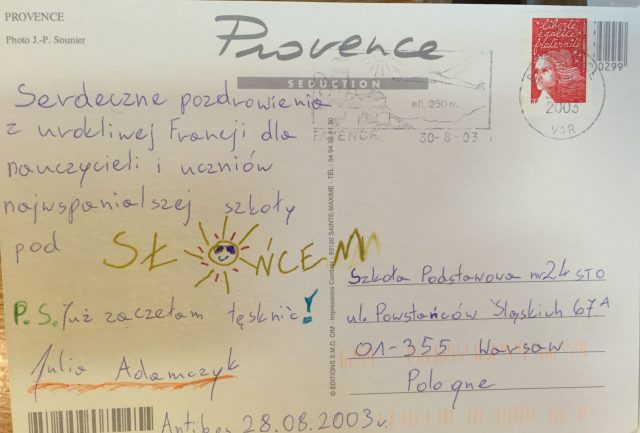 PROVENCE
Photo J.-P. Sounier
Provence
SEDUCTION
Serdeczne pozdrowienia
z urokliwej Francji dla
nauczycieli i uczniów
najwspanialszej szkoły
pod SŁOŃCEM
P.S. Już zaczęłam tęsknić!
Julia Adamczyk
Antibes 28.08.2003 r.
© EDITIONS S.M.D. CIM - Impressions Combier - 83120 SAINTE-MAXIME - TÉL.: 04 94 96 61 30
alt. 350 m.
FAYENCE
30-8-03
liberté
égalité
fraternité
RF
2003
VAR
0299
Szkoła Podstawowa nr 24 STO
ul. Powstańców Śląskich 67A
01-355 Warsaw
Pologne